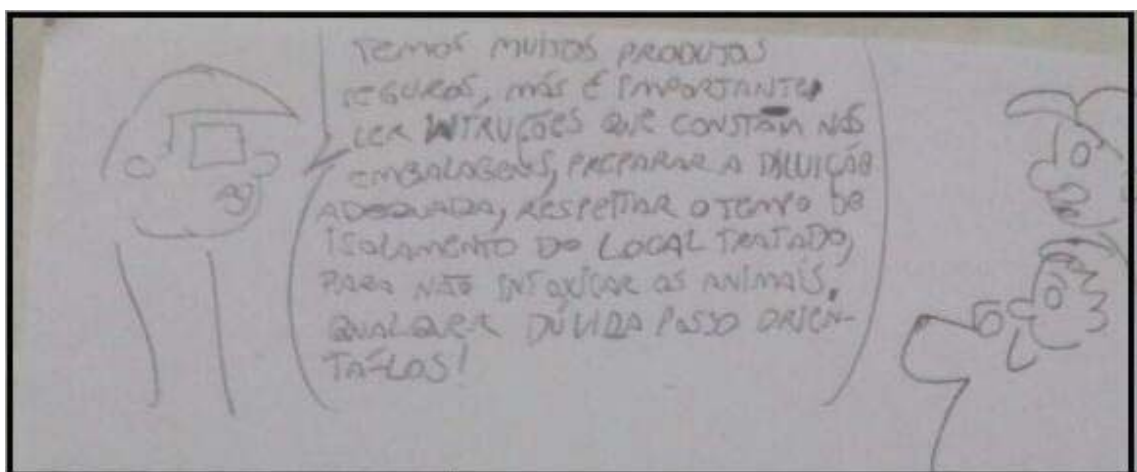 TEMOS MUITOS PRODUTOS
SEGUROS, MAS É IMPORTANTE
LER INTRUÇÕES QUE CONSTAM NAS
EMBALAGENS, PREPARAR A DILUIÇÃO
ADEQUADA, RESPEITAR O TEMPO DE
ISOLAMENTO DO LOCAL TRATADO,
PARA NÃO INTOXICAR OS ANIMAIS.
QUALQUER DÚVIDA POSSO ORIEN-
TÁ-LOS!